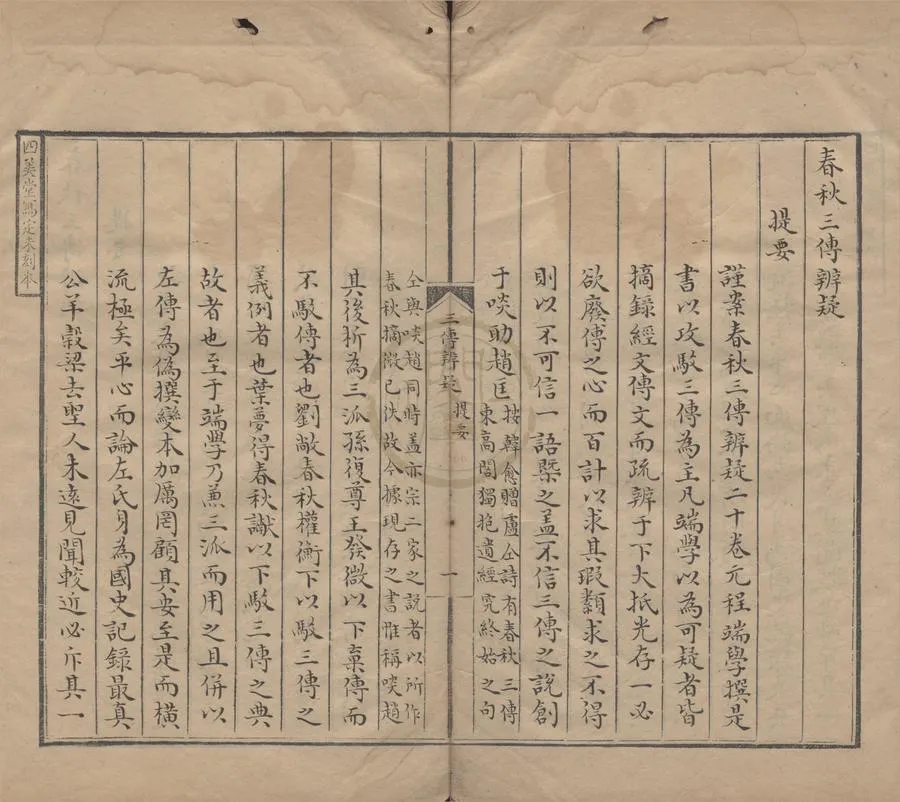 春秋三傳辨疑
提要
謹案春秋三傳辨疑二十卷元程端學撰是
書以攻駁三傳為主凡端學以為可疑者皆
摘錄經文傳文而疏辨于下大抵光存一必
欲廢傳之心而百計以求其瑕纇求之不得
則以不可信一語槩之蓋不信三傳之說創
于啖助趙匡
按韓愈贈盧仝詩有春秋三傳
東高閣獨抱遺經究終始之句
三傳辨疑
提要
一
仝與啖趙同時盖亦宗二家之說者以所作
春秋摘微已佚故今據現存之書惟稱啖趙
其後析為三派孫復尊王發微以下棄傳而
不駁傳者也劉敞春秋權衡下以駁三傳之
義例者也葉夢得春秋讞以下駁三傳之典
故者也至于端學乃兼三派而用之且併以
左傳為偽撰變本加厲罔顧其安至是而橫
流極矣平心而論左氏身為國史記錄最真
公羊穀梁去聖人未遠見聞較近必斥其一
四美堂寫定未刻本